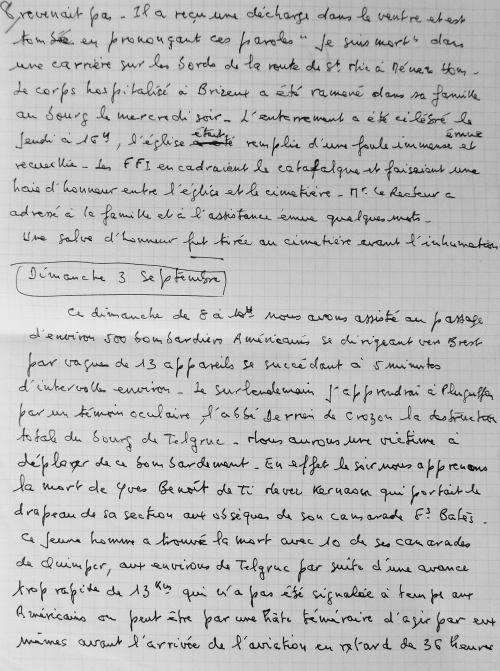 revenait pas. Il a reçu une décharge dans le ventre et est
tombé en prononçant ces paroles "Je suis mort" dans
une carrière sur les bords de la route de St. Nic à Ménez Hom.
Le corps hospitalisé à Brizeux a été ramené dans sa famille
au bourg le mercredi soir. L'enterrement a été célébré le
Jeudi à 16H, l'église était remplie d'une foule immense et émue
recueillie. Les FFI encadraient le catafalque et faisaient une
haie d'honneur entre l'église et le cimetière. Mr. Le Recteur a
adressé à la famille et à l'assistance émue quelques mots.
Une salve d'honneur fut tirée au cimetière avant l'inhumation
Dimanche 3 Septembre
Ce dimanche de 8 à 10H nous avons assisté au passage
d'environ 500 bombardiers Américains se dirigeant vers Brest
par vagues de 13 appareils se succédant à 5 minutes
d'intervalle environ. Le surlendemain j'apprendrai à Pluguffan
par un témoin oculaire, l'abbé de Crozon la destruction
totale du bourg de Telgruc. Nous aurons une victime à
déplorer de ce bombardement. En effet le soir nous apprenons
la mort de Yves Benoît de Ti Never Kernaon qui portait le
drapeau de sa section aux obsèques de son camarade Fs Batès.
Ce jeune homme a trouvé la mort avec 10 de ses camarades
de Quimper, aux environs de Telgruc par suite d'une avance
trop rapide de 13 Kms qui n'a pas été signalée à temps aux
Américains ou peut être par une hâte téméraire d'agir par eux
mêmes avant l'arrivée de l'aviation en retard de 36 heures